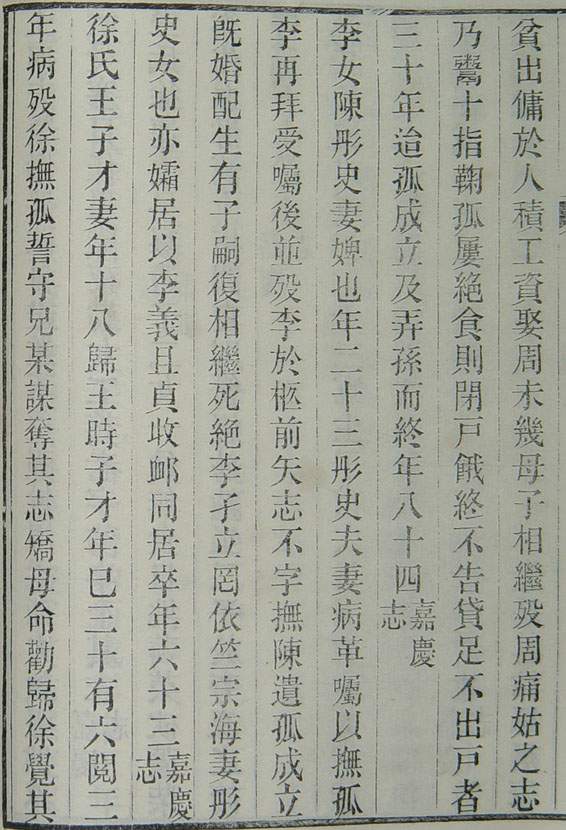 貧出傭於人積工資娶周未幾母子相繼歿周痛姑之志
乃鬻十指鞠孤屢絶食則閉戸餓終不告貸足不出戸者
三十年迨孤成立及弄孫而終年八十四嘉慶志
李女陳彤史妻婢也年二十三彤史夫妻病革囑以撫孤
李再拜受囑後並歿李於柩前矢志不字撫陳遺孤成立
旣婚配生有子嗣復相繼死絶李孑立罔依竺宗海妻彤
史女也亦孀居以李義且貞收卹同居卒年六十三嘉慶志
徐氏王子才妻年十八歸王時子才年巳三十有六閱三
年病歿徐撫孤誓守兄某謀奪其志矯母命勸歸徐覺其